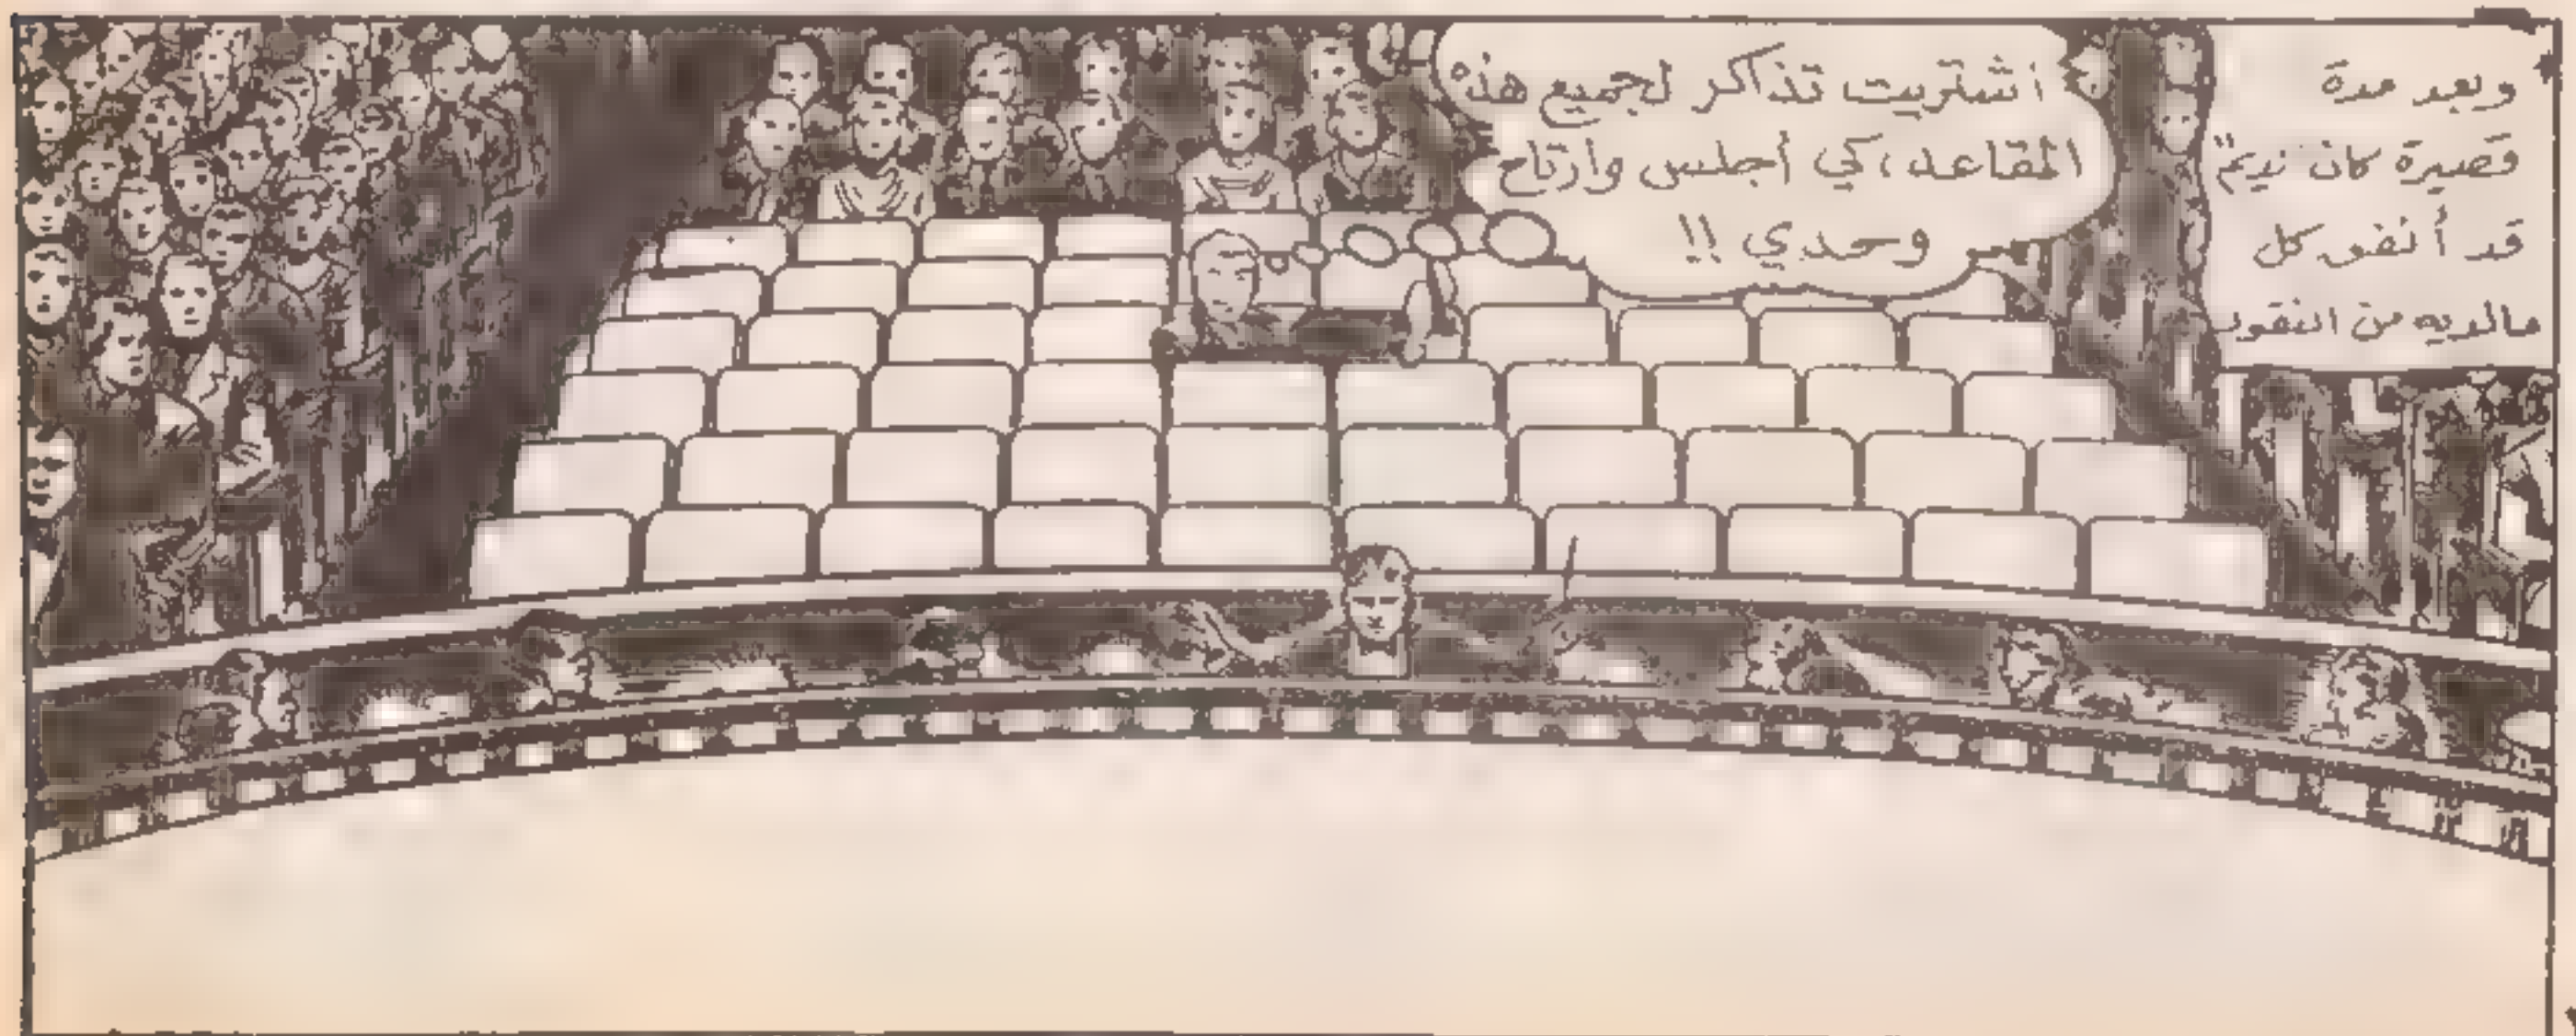 وبعد مدة
قصيرة كان نديم
قد أنفق كل
مالديه من النقود
اشتريت تذاكر لجميع هذه
المقاعد، كي أجلس وأرتاح
وحدي !!